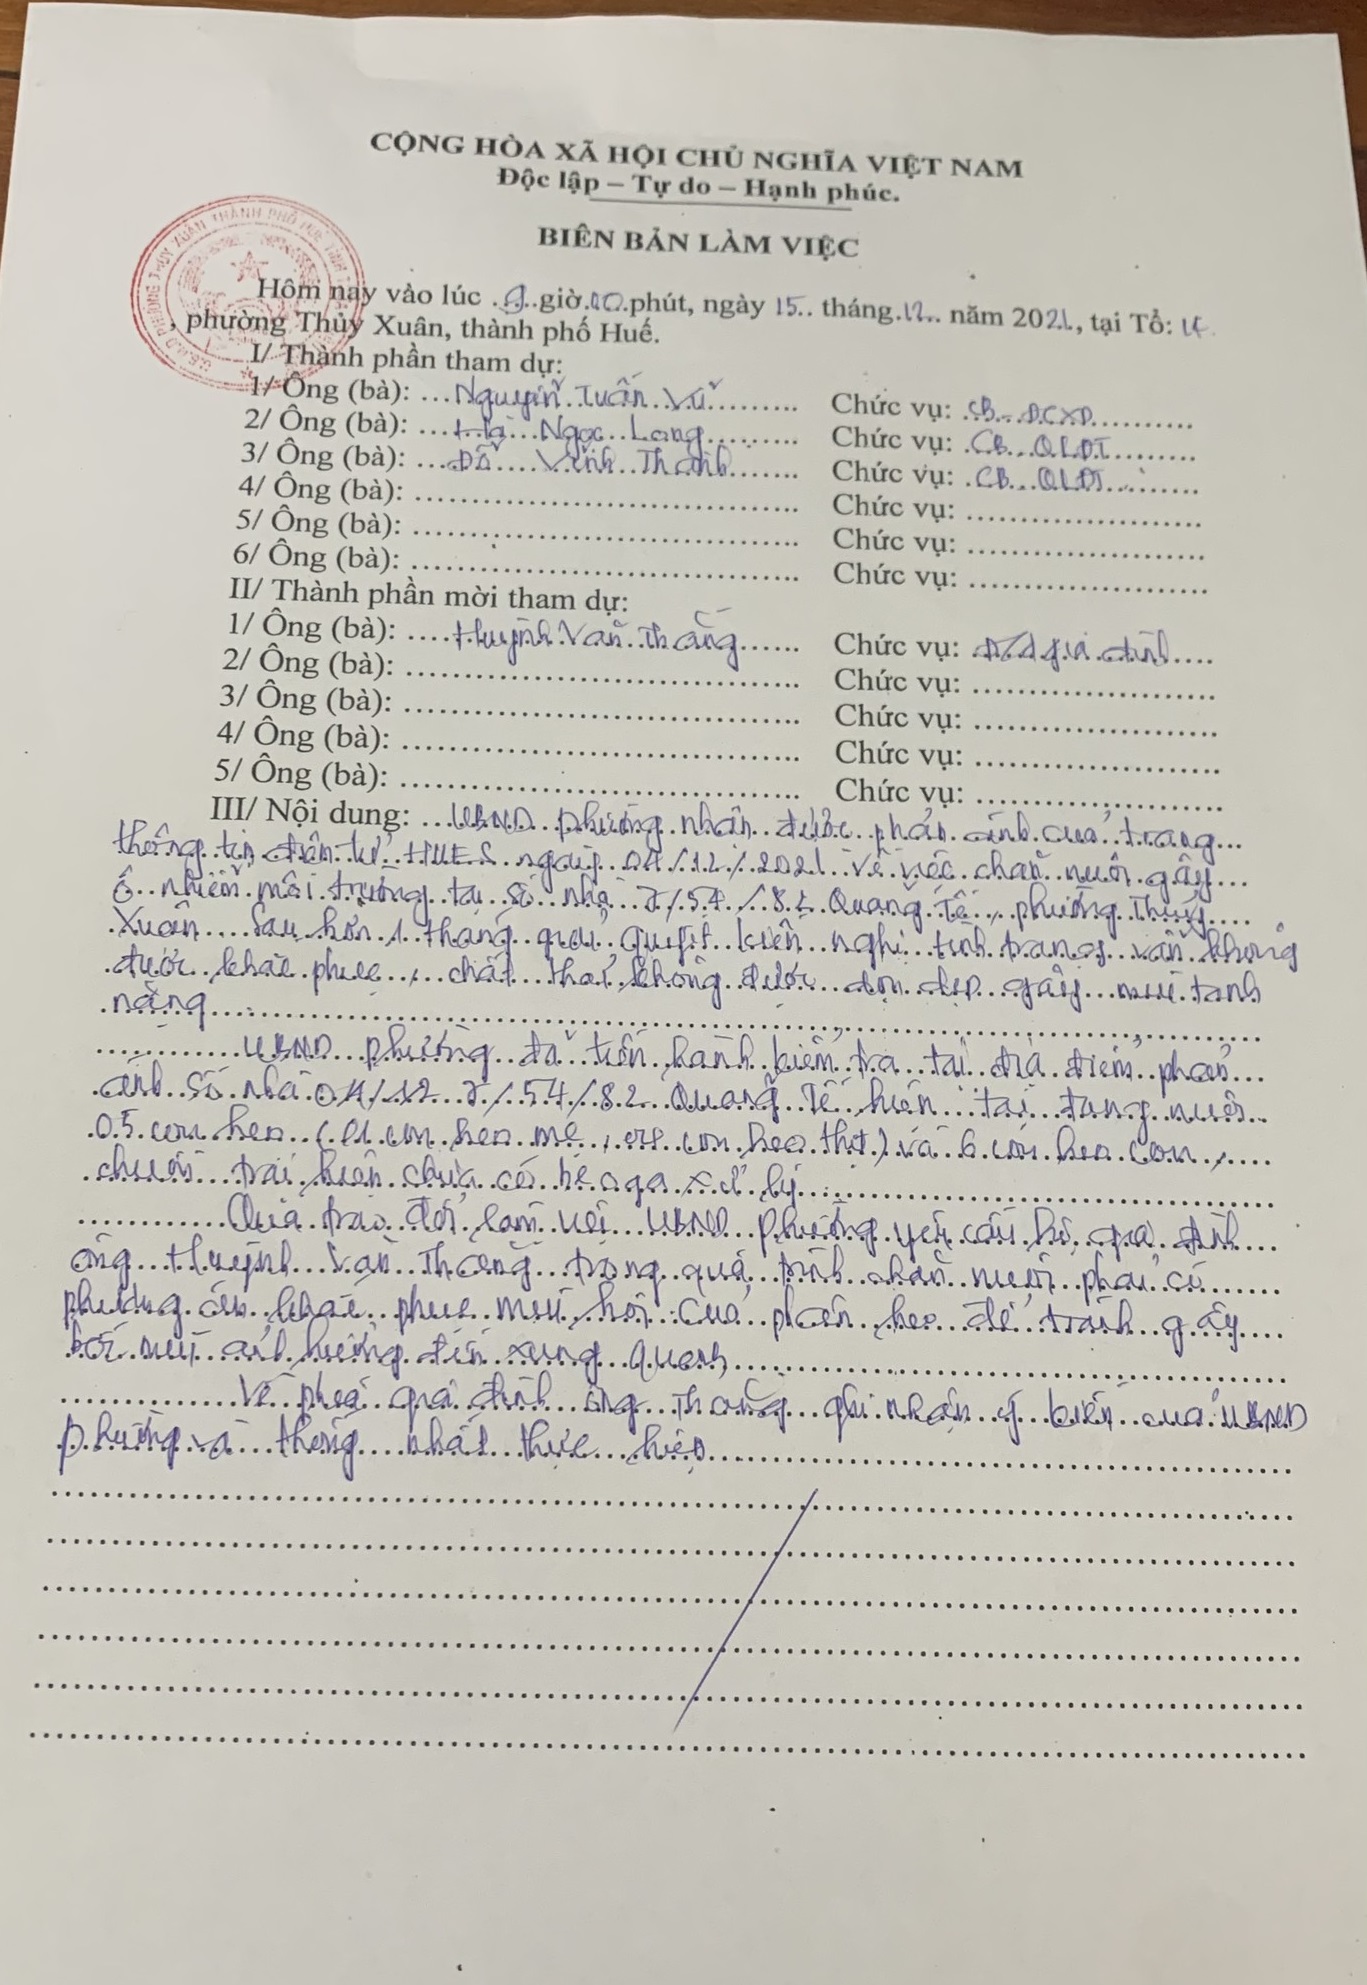 CỘNG HÒA XÃ HỘI CHỦ NGHĨA VIỆT NAM
Độc lập – Tự do – Hạnh phúc.
BIÊN BẢN LÀM VIỆC
Hôm nay vào lúc .9..giờ.00.phút, ngày 15.. tháng.12.. năm 2021., tại Tổ: 14
, phường Thủy Xuân, thành phố Huế.
I/ Thành phần tham dự:
1/ Ông (bà): ...Nguyễn Tuấn Vũ......... Chức vụ: CB ĐCXD..........
2/ Ông (bà): ...Hà Ngọc Long......... Chức vụ: CB QLĐT........
3/ Ông (bà): ...Đỗ Vinh Thành....... Chức vụ: CB QLĐT........
4/ Ông (bà): ........................................ Chức vụ: .........................
5/ Ông (bà): ........................................ Chức vụ: .........................
6/ Ông (bà): ........................................ Chức vụ: .........................
II/ Thành phần mời tham dự:
1/ Ông (bà): ....Huỳnh Văn Thắng...... Chức vụ: Đ/d gia đình....
2/ Ông (bà): ........................................ Chức vụ: .........................
3/ Ông (bà): ........................................ Chức vụ: .........................
4/ Ông (bà): ........................................ Chức vụ: .........................
5/ Ông (bà): ........................................ Chức vụ: .........................
III/ Nội dung: ...UBND phường nhận được phản ánh của trang
thông tin điện tử HUES ngày 04/12/2021 về việc chăn nuôi gây
ô nhiễm môi trường tại số nhà 7/54/82 Quảng Tế, phường Thủy
Xuân. Sau hơn 1 tháng giải quyết kiến nghị tình trạng vẫn không
được khắc phục, chất thải không được dọn dẹp gây mùi tanh
nặng
UBND phường đã tiến hành kiểm tra tại địa điểm phản
ánh số nhà 7/54/82 Quảng Tế hiện tại đang nuôi
05 con heo (01 con heo mẹ, 04 con heo thịt) và 6 con heo con,
chuồng trại hiện chưa có bể nga xử lý
Qua trao đổi làm việc UBND phường yêu cầu hộ gia đình
ông Huỳnh Văn Thắng trong quá trình chăn nuôi phải có
phương án khắc phục mùi hôi của phân heo để tránh gây
bốc mùi ảnh hưởng đến xung quanh
Về phía gia đình ông Thắng ghi nhận ý kiến của UBND
phường và thống nhất thực hiện